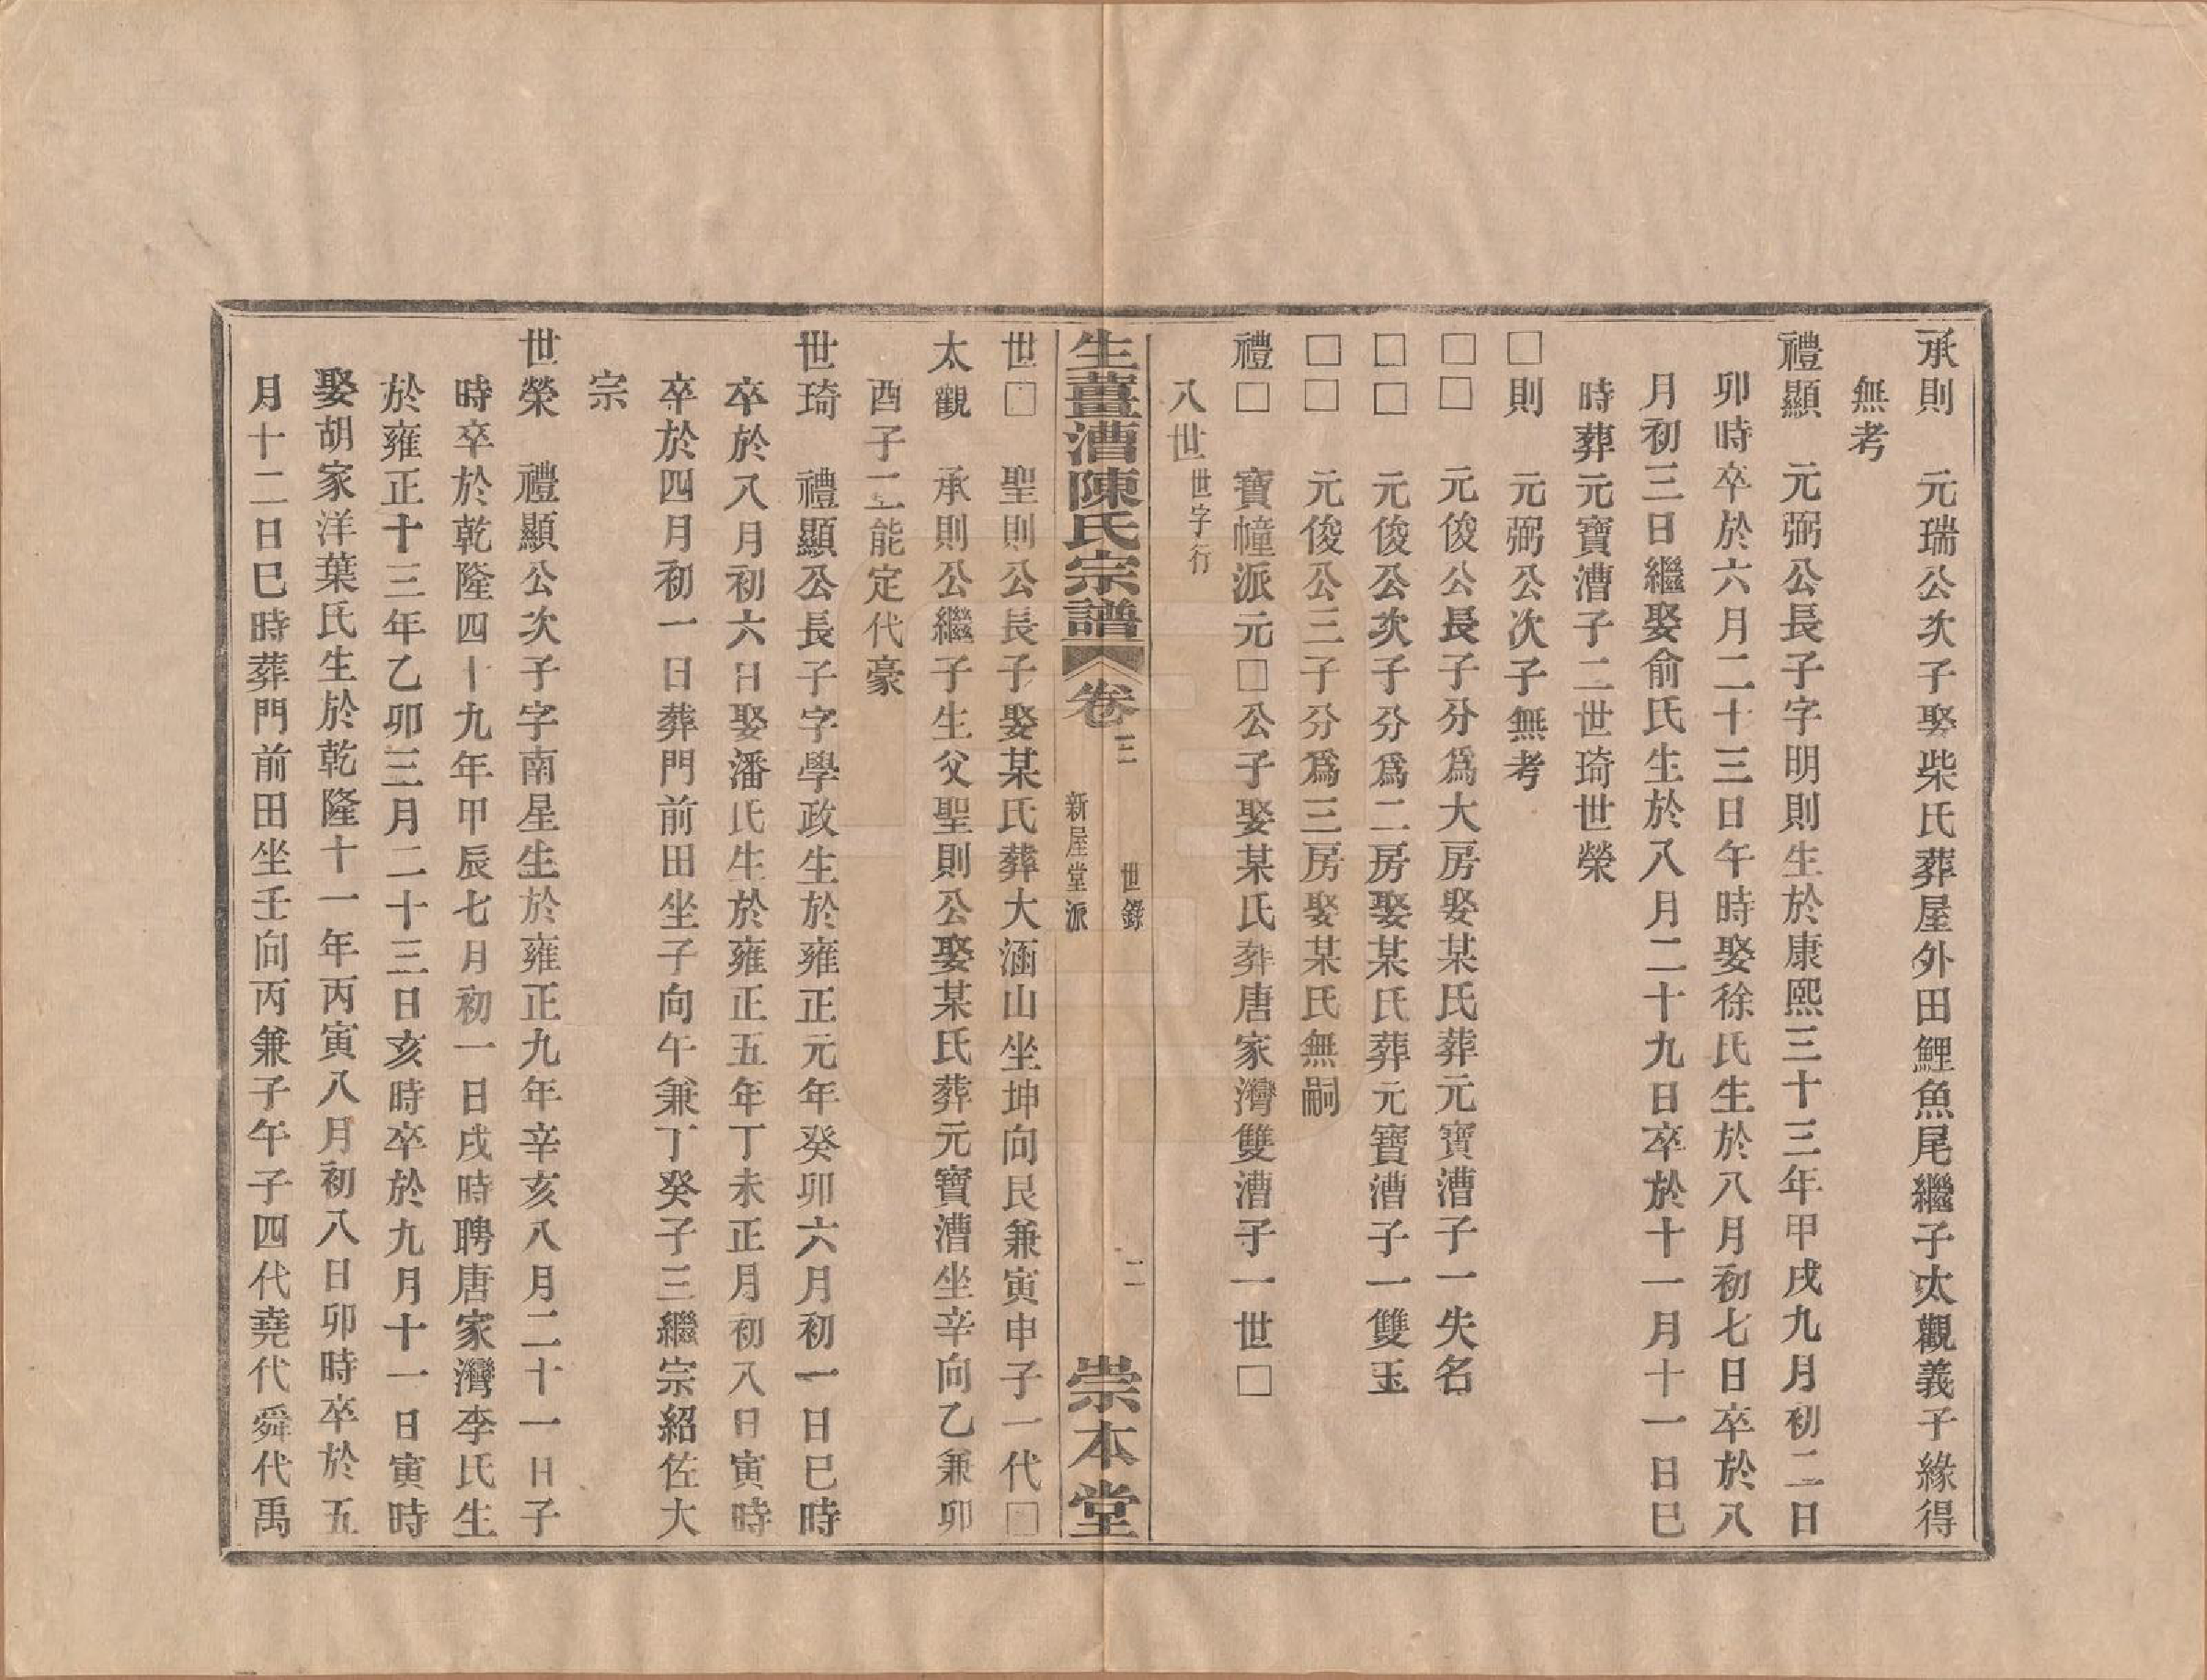 承則　元瑞公次子娶柴氏葬屋外田鯉魚尾繼子太觀義子緣得
無考
禮顯　元弼公長子字明則生於康熙三十三年甲戌九月初二日
卯時卒於六月二十三日午時娶徐氏生於八月初七日卒於八
月初三日繼娶俞氏生於八月二十九日卒於十一月十一日巳
時葬元寶漕子二世琦世榮
□則　元弼公次子無考
□□　元俊公長子分爲大房娶某氏葬元寶漕子一失名
□□　元俊公次子分爲二房娶某氏葬元寶漕子一雙玉
□□　元俊公三子分爲三房娶某氏無嗣
禮□　寶幢派元□公子娶某氏葬唐家灣雙漕子一世□
八世世字行
生薑漕陳氏宗譜　卷三　世錄　二　崇本堂
新屋堂派
世□　聖則公長子娶某氏葬大涵山坐坤向艮兼寅申子一代□
太觀　承則公繼子生父聖則公娶某氏葬元寶漕坐辛向乙兼卯
酉子二能定代豪
世琦　禮顯公長子字學政生於雍正元年癸卯六月初一日巳時
卒於八月初六日娶潘氏生於雍正五年丁未正月初八日寅時
卒於四月初一日葬門前田坐子向午兼丁癸子三繼宗紹佐大
宗
世榮　禮顯公次子字南星生於雍正九年辛亥八月二十一日子
時卒於乾隆四十九年甲辰七月初一日戌時聘唐家灣李氏生
於雍正十三年乙卯三月二十三日亥時卒於九月十一日寅時
娶胡家洋葉氏生於乾隆十一年丙寅八月初八日卯時卒於五
月十二日巳時葬門前田坐壬向丙兼子午子四代堯代舜代禹